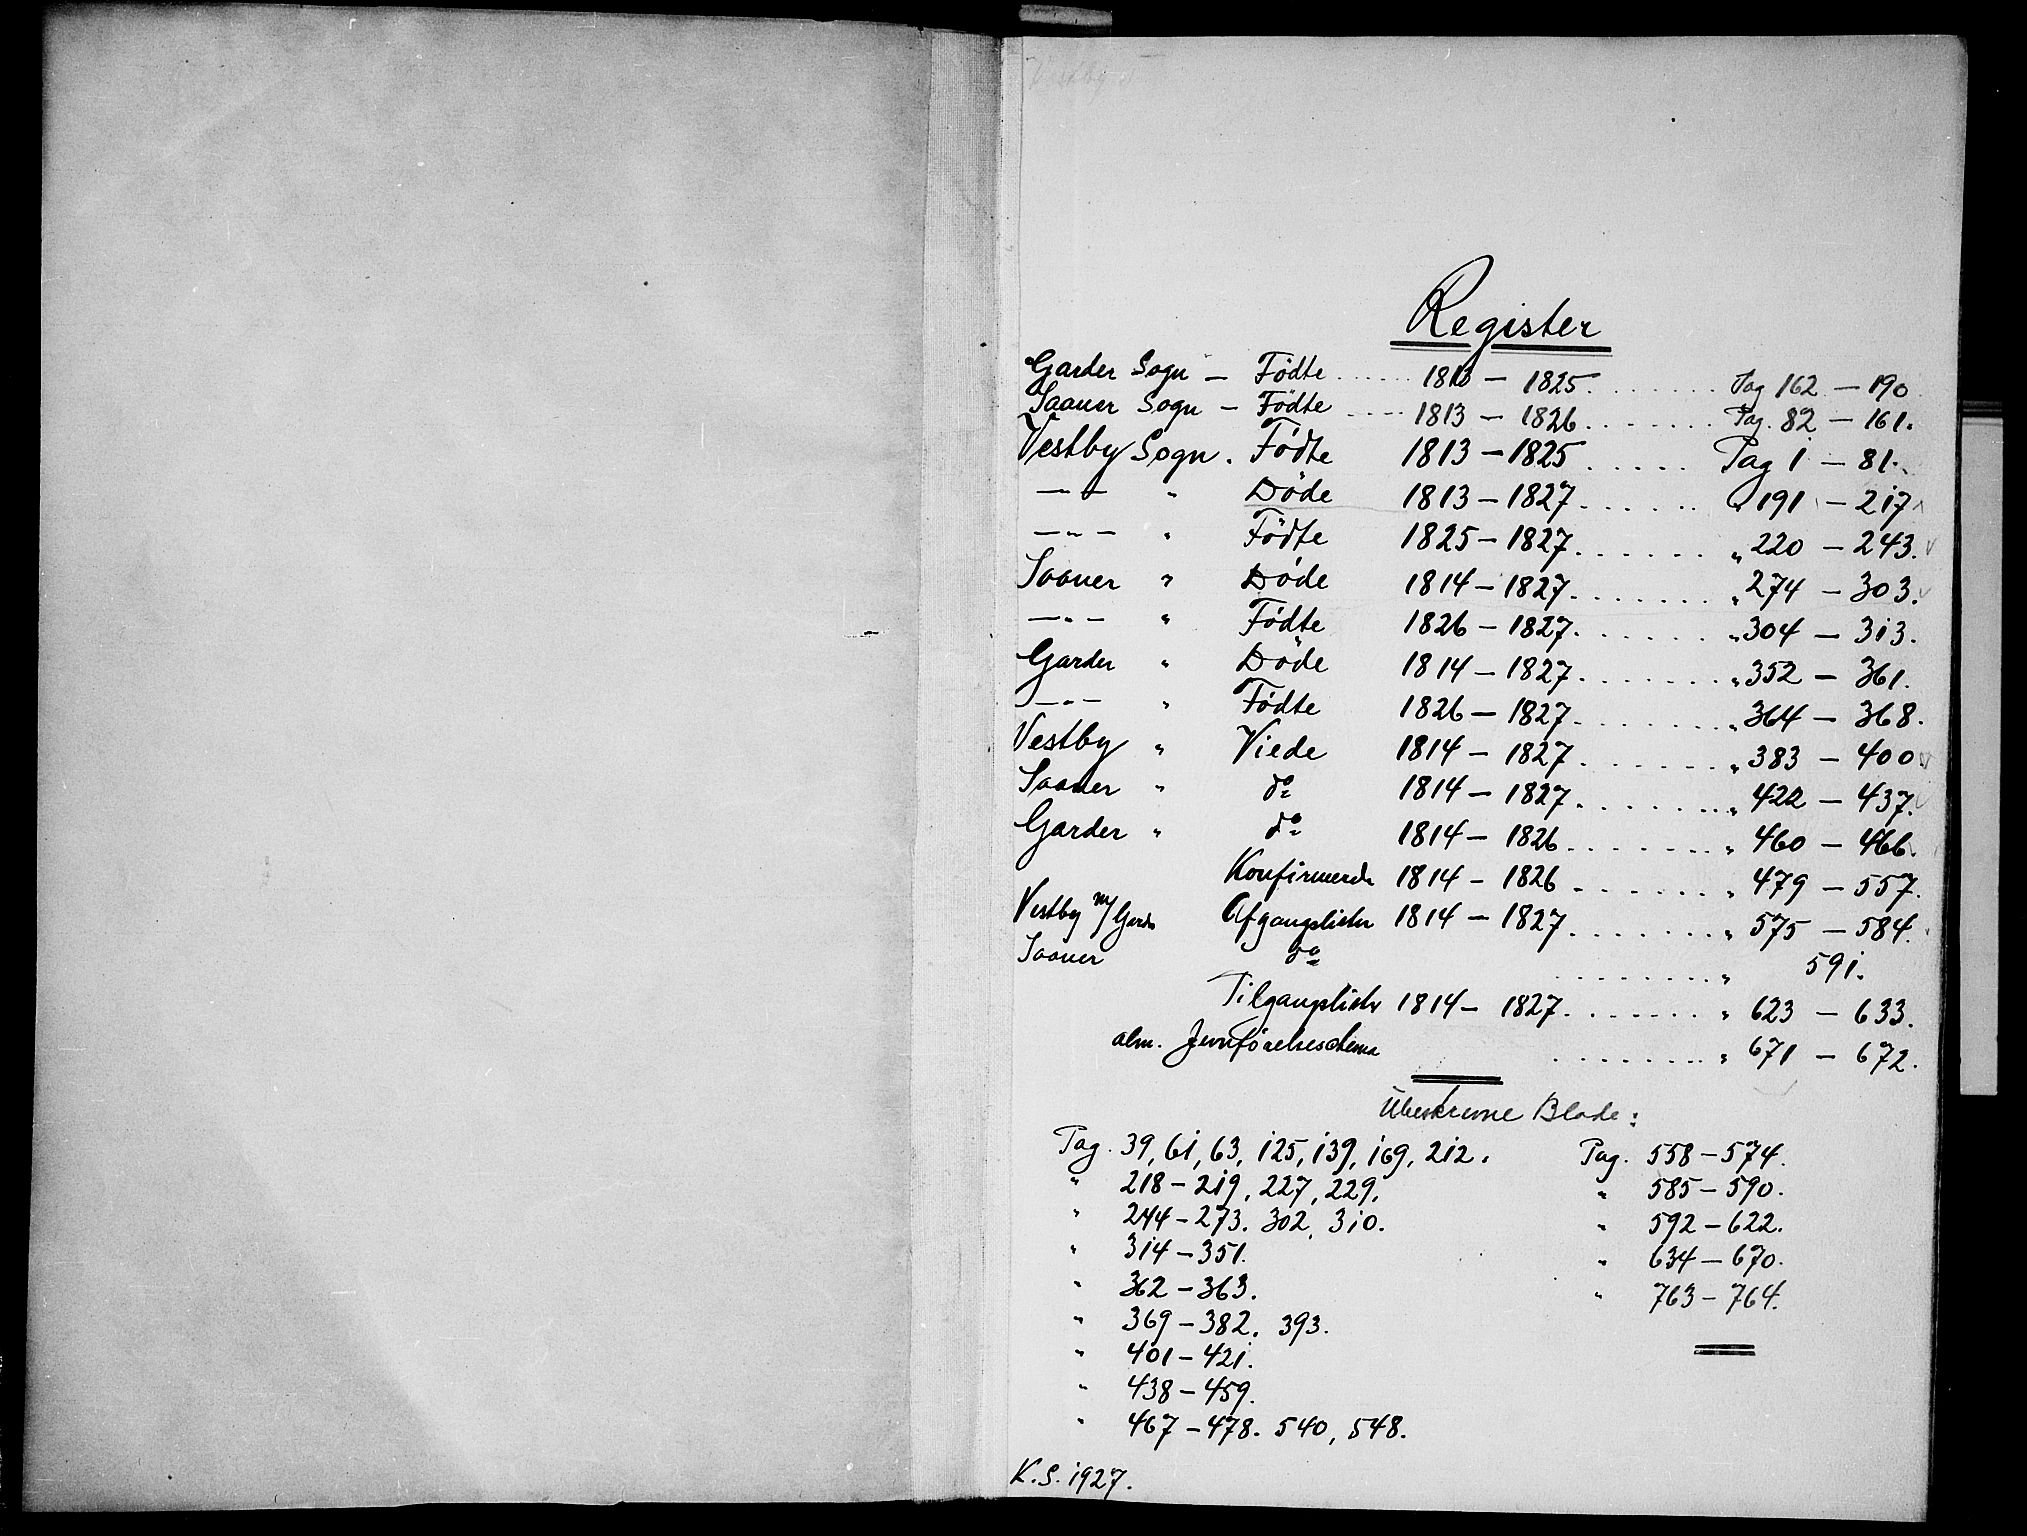 Register
Garder Sogn – Födte ...... 1813 – 1825 ....... Pag 162 – 190
Saaner Sogn – Födte .... 1813 – 1826 ....... Pag. 82 – 161.
Vestby Sogn. Födte 1813 – 1825 ..... Pag 1 – 81.
–"– " Döde 1813 – 1827 ...... " 191 – 217
–"– " Födte 1825 – 1827 ...... " 220 – 243.
Saaner " Döde 1814 – 1827 ....... " 274 – 303.
–"– " Födte 1826 – 1827 ...... " 304 – 313.
Garder " Döde 1814 – 1827 ....... " 352 – 361.
–"– " Födte 1826 – 1827 ....... " 364 – 368.
Vestby " Viede 1814 – 1827 ....... " 383 – 400
Saaner " do 1814 – 1827 ....... " 422 – 437.
Garder " do 1814 – 1826 ....... " 460 – 466.
Konfirmerde 1814 – 1826 ....... " 479 – 557.
Vestby m/ Garder Afgangslister 1814 – 1827 ....... " 575 – 584.
Saaner do ....... " 591.
Tilgangslister 1814 – 1827 ....... " 623 – 633.
alm. Jevnförelsesschema ....... " 671 – 672.
Ubeskrevne Blade:
Pag. 39, 61, 63, 125, 139, 169, 212. Pag. 558 – 574.
" 218 – 219, 227, 229. " 585 – 590.
" 244 – 273. 302, 310. " 592 – 622.
" 314 – 351. " 634 – 670.
" 362 – 363. " 763 – 764.
" 369 – 382. 393.
" 401 – 421.
" 438 – 459.
" 467 – 478. 540, 548.
K.S. 1927.